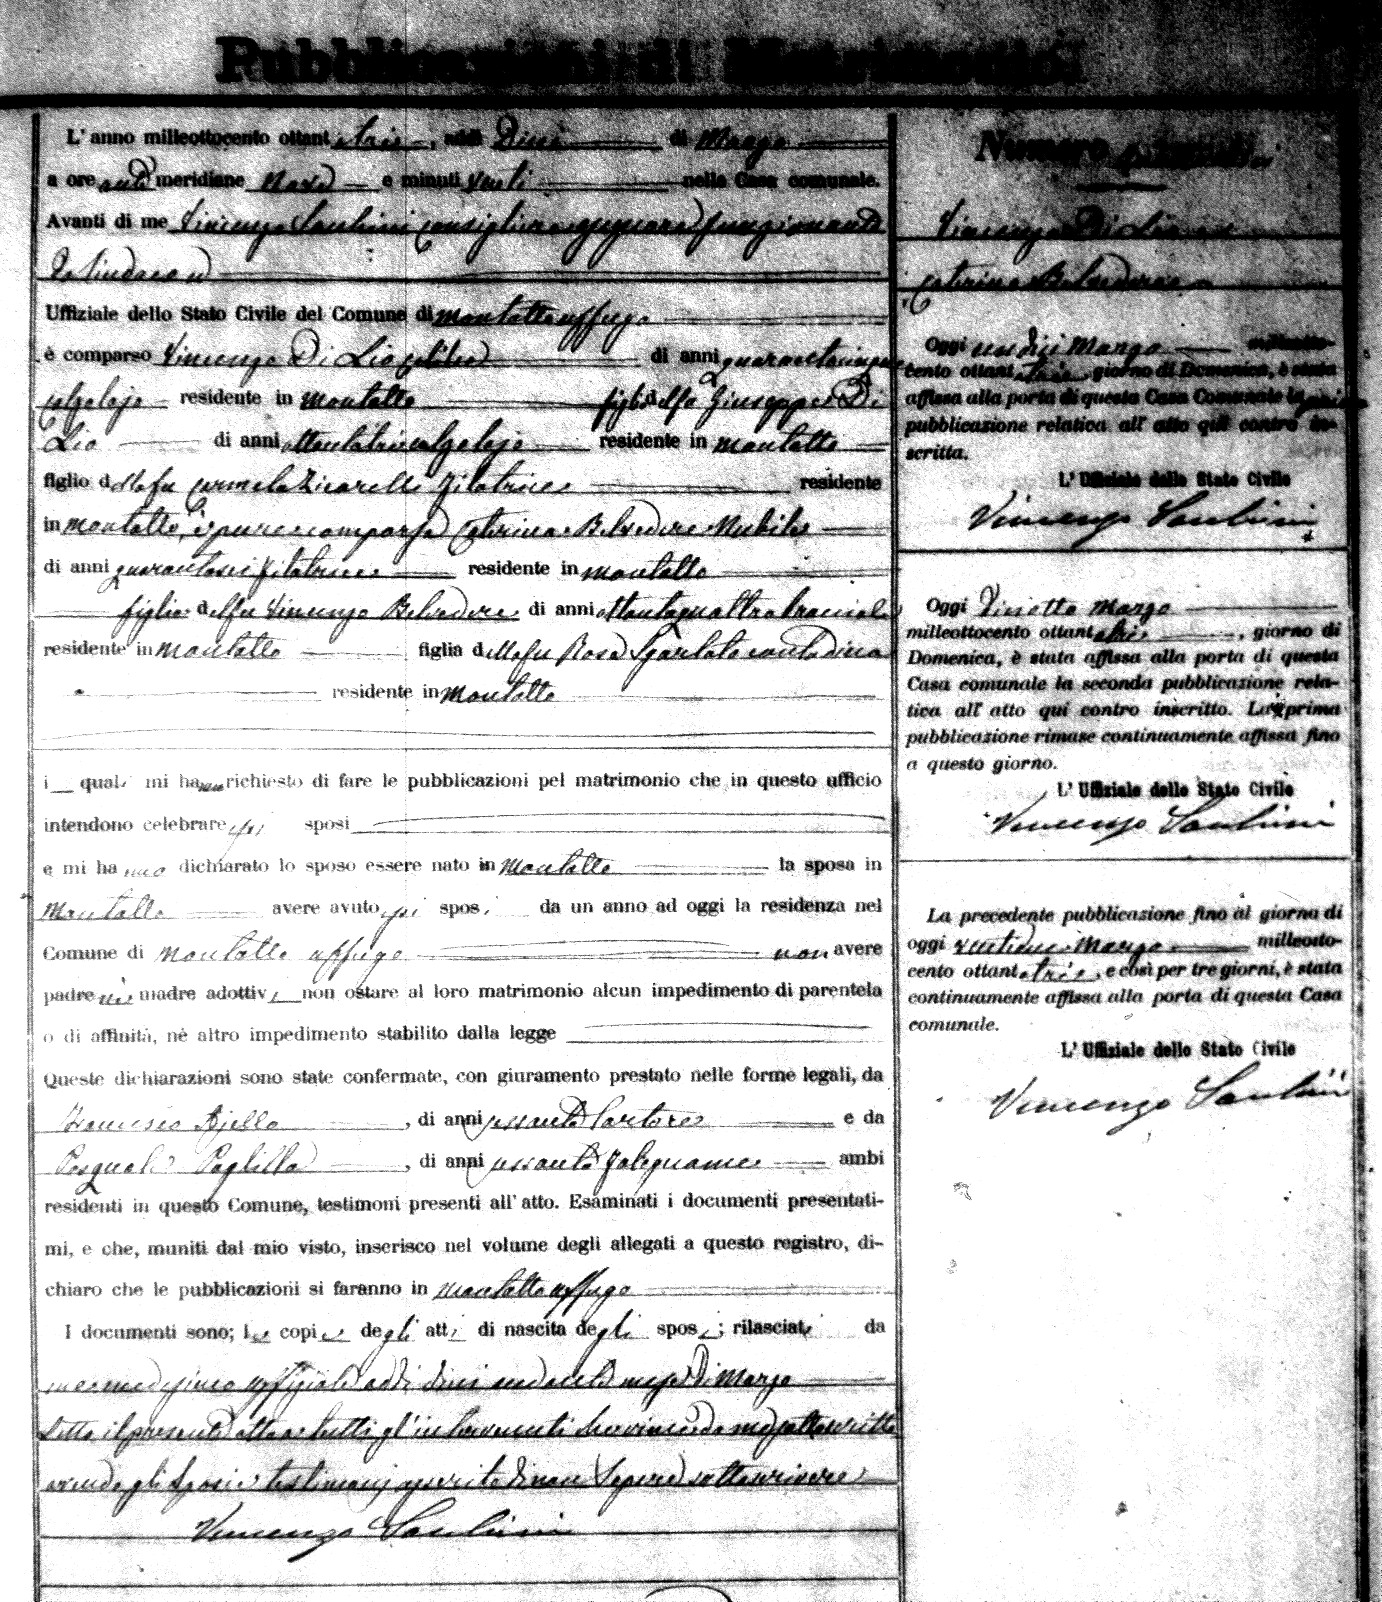 Pubblicazioni di Matrimonio
L'anno milleottocento ottantatrè, addì Dieci di Marzo
a ore anti meridiane Nove e minuti venti nella Casa comunale.
Avanti di me Vincenzo Santini Consigliere funzionante
da Sindaco
Uffiziale dello Stato Civile del Comune di Montalto Uffugo
è comparso Vincenzo Di Lio celibe di anni quarantacinque
calzolajo residente in Montalto figlio del fu Giuseppe Di
Lio di anni ottantatrè calzolajo residente in Montalto
figlio della fu Carmela Zicarelli filatrice residente
in Montalto, è pure comparsa Caterina Belvedere Nubile
di anni quarantasei filatrice residente in Montalto
figlia del fu Vincenzo Belvedere di anni ottantaquattro bracciale
residente in Montalto figlia della fu Rosa Sgarlato contadina
residente in Montalto
i quali mi hanno richiesto di fare le pubblicazioni pel matrimonio che in questo ufficio
intendono celebrare essi sposi
e mi hanno dichiarato lo sposo essere nato in Montalto la sposa in
Montalto avere avuto essi sposi da un anno ad oggi la residenza nel
Comune di Montalto Uffugo non avere
padre nè madre adottivi non ostare al loro matrimonio alcun impedimento di parentela
o di affinità, nè altro impedimento stabilito dalla legge
Queste dichiarazioni sono state confermate, con giuramento prestato nelle forme legali, da
Francesco Ajello, di anni sessanta Sartore e da
Pasquale Paglilla, di anni sessanta falegname ambi
residenti in questo Comune, testimoni presenti all'atto. Esaminati i documenti presentati-
mi, e che, muniti dal mio visto, inserisco nel volume degli allegati a questo registro, di-
chiaro che le pubblicazioni si faranno in Montalto Uffugo
I documenti sono; le copie degli atti di nascita degli sposi; rilasciate da
me medesimo uffiziale addì dieci mese di Marzo
Letto il presente atto a tutti gl'intervenuti da me sottoscritto
avendo gli sposi e testimonj asserito di non sapere sottoscrivere
Vincenzo Santini
Numero
Vincenzo Di Lio
Caterina Belvedere
Oggi undici Marzo milleotto-
cento ottantatrè giorno di Domenica, è stata
affissa alla porta di questa Casa Comunale la prima
pubblicazione relativa all'atto qui contro in-
scritta.
L'Uffiziale dello Stato Civile
Vincenzo Santini
Oggi Diciotto Marzo
milleottocento ottantatrè, giorno di
Domenica, è stata affissa alla porta di questa
Casa comunale la seconda pubblicazione rela-
tica all'atto qui contro inscritto. La prima
pubblicazione rimase continuamente affissa fino
a questo giorno.
L'Uffiziale dello Stato Civile
Vincenzo Santini
La precedente pubblicazione fino al giorno di
oggi ventidue Marzo milleotto-
cento ottantatrè, e così per tre giorni, è stata
continuamente affissa alla porta di questa Casa
comunale.
L'Uffiziale dello Stato Civile
Vincenzo Santini